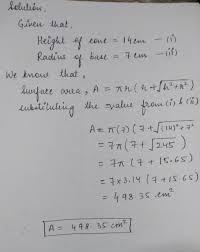 Solution.
Given that,
Height of cone = 14 cm — (i)
Radius of base = 7 cm — (ii)
We know that,
Surface area, A = πr(r+√h²+r²)
substituting the value from (i) & (ii)
A = π(7)(7+√(14)²+7²
= 7π(7+√245)
= 7π(7+15.65)
= 7×3.14(7+15.65)
= 498.35 cm²
A = 498.35 cm²